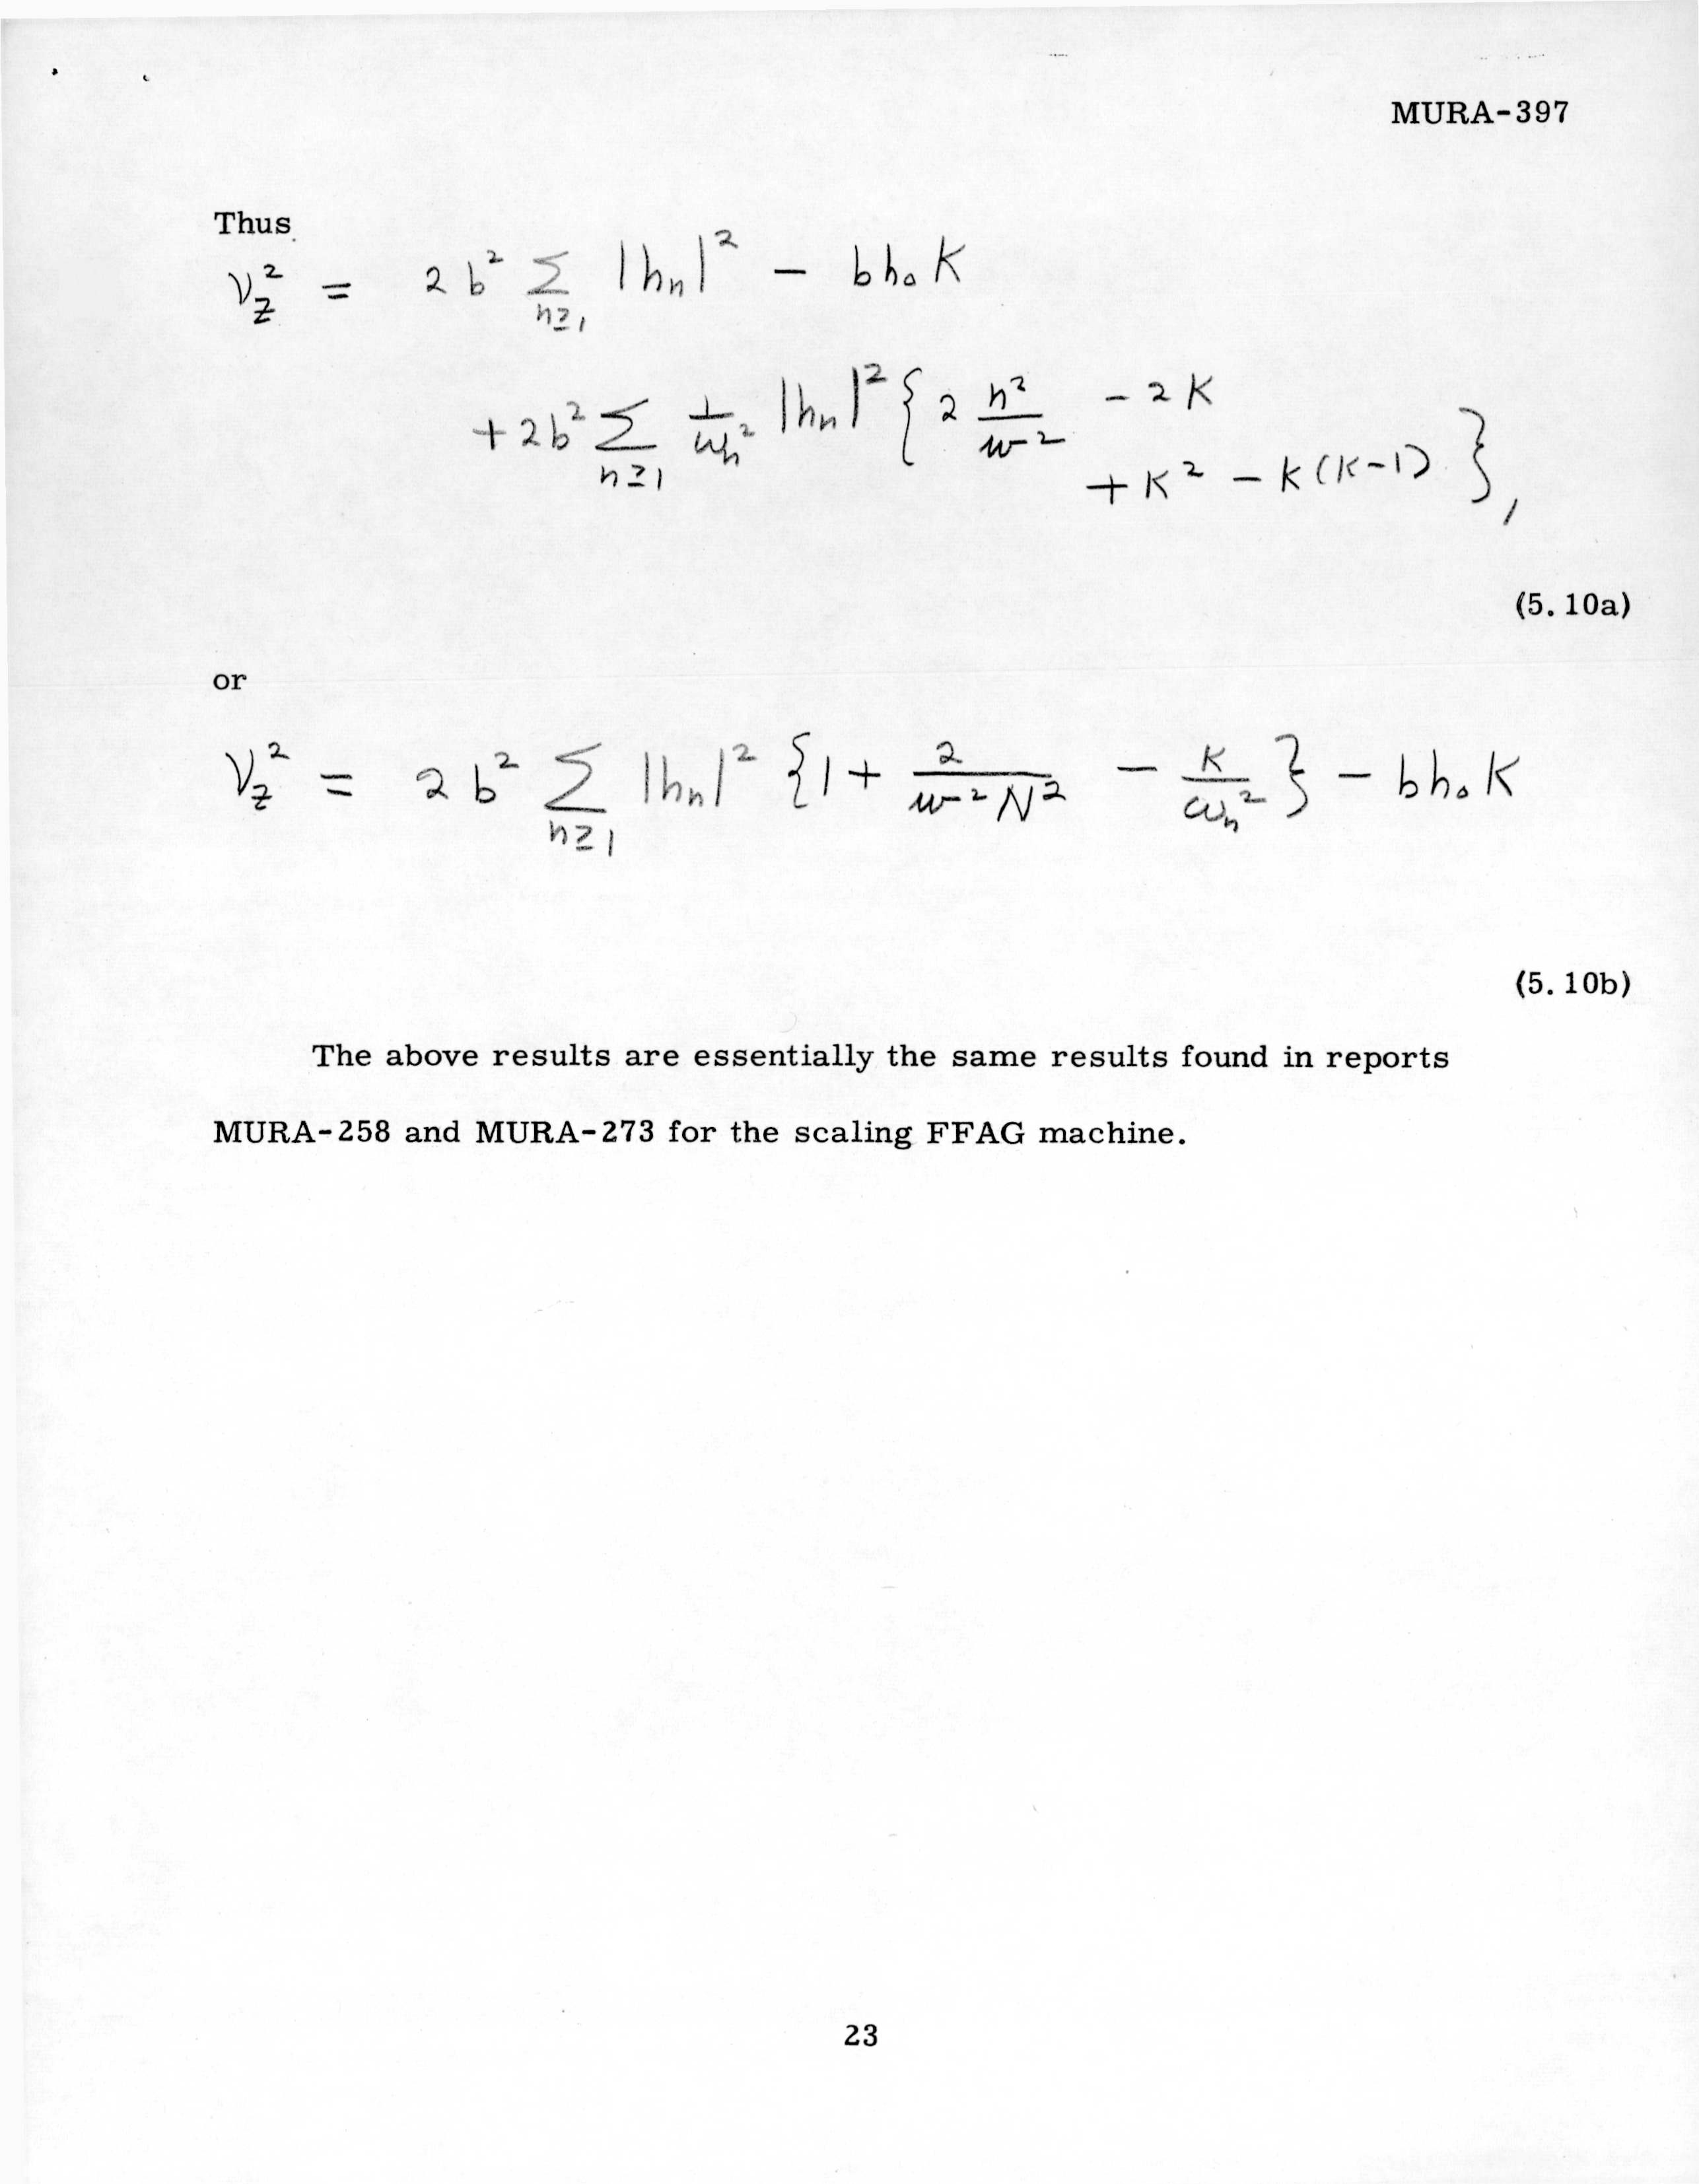 MURA-397
Thus
ν_z² = 2 b² Σ_{n≥1} |h_n|² − b h₀ K
+ 2b² Σ_{n≥1} 1/ω_n² |h_n|² { 2 n²/w² − 2K
+ K² − K(K−1) },
(5. 10a)
or
ν_z² = 2 b² Σ_{n≥1} |h_n|² { 1 + 2/(w² N²) − K/ω_n² } − b h₀ K
(5. 10b)
The above results are essentially the same results found in reports
MURA-258 and MURA-273 for the scaling FFAG machine.
23